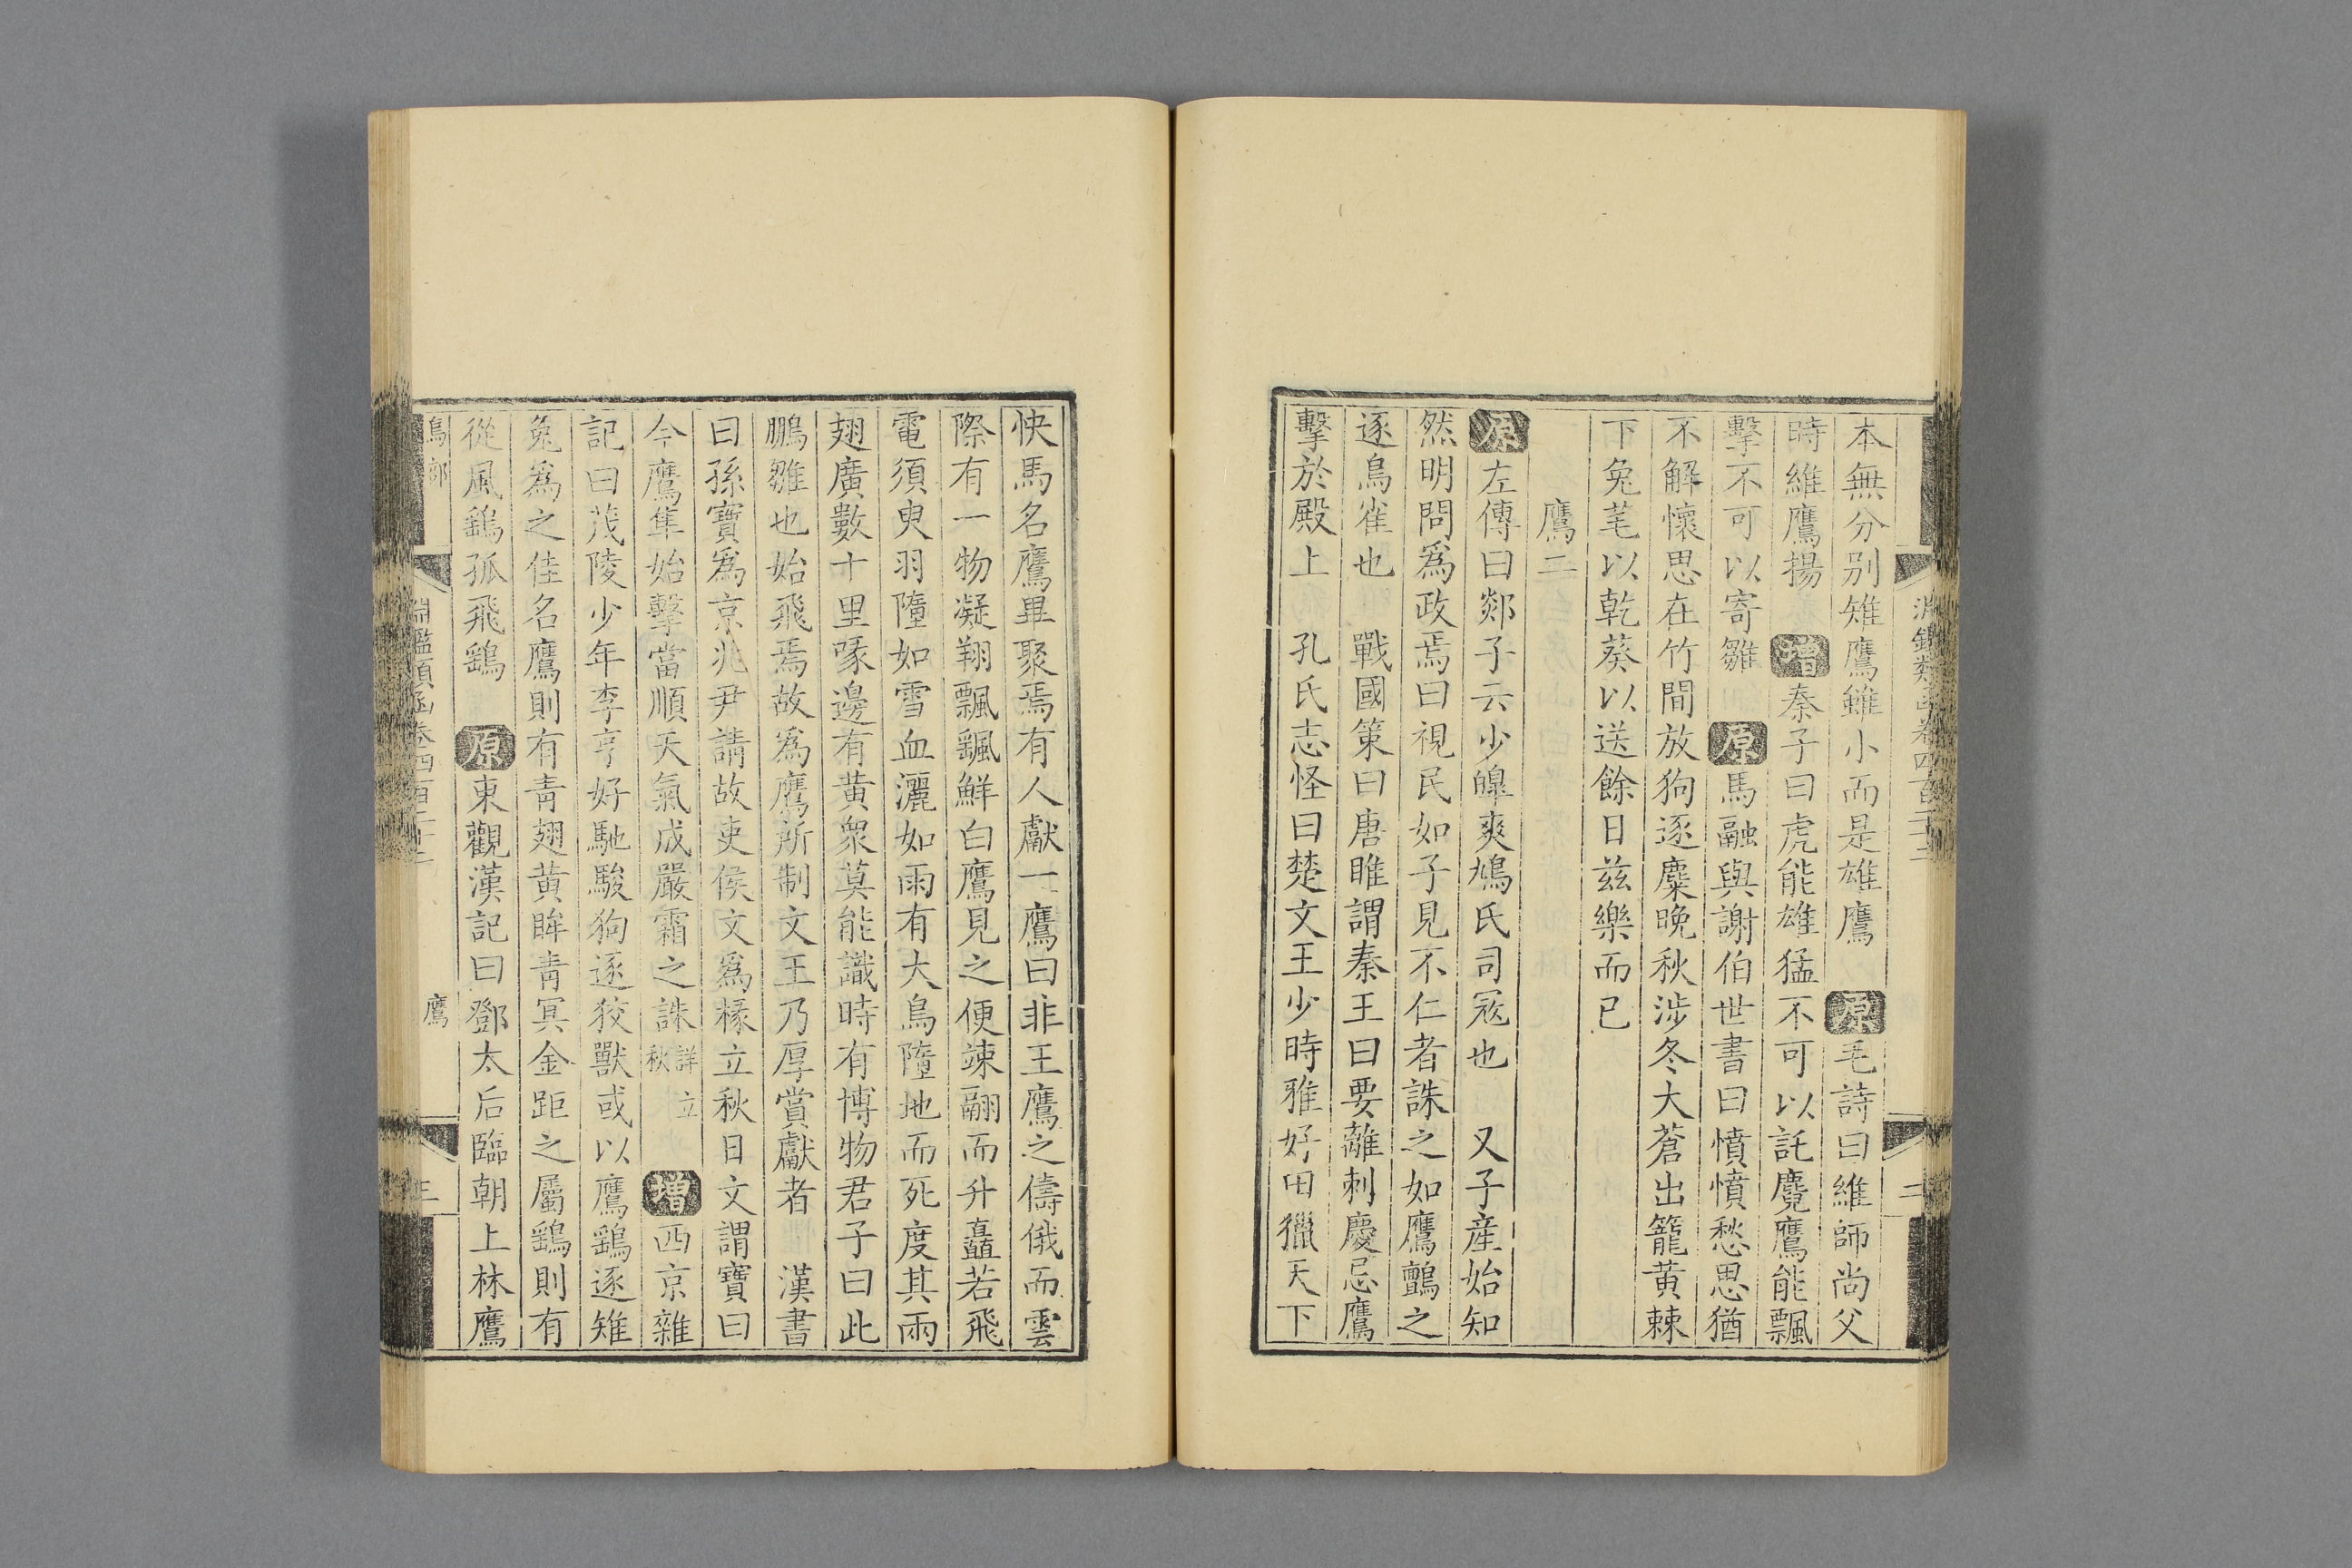 本無分别雉鷹雖小而是雄鷹 原毛詩曰維師尚父
時維鷹揚 增秦子曰虎能雄猛不可以託麑鷹能飄
擊不可以寄雛 原馬融與謝伯世書曰憤憤愁思猶
不解懷思在竹間放狗逐麋晩秋涉冬大蒼出籠黄棘
下兔芼以乾葵以送餘日兹樂而已
鷹二
原左傳曰郯子云少皥爽鳩氏司寇也 又子産始知
然明問爲政焉曰視民如子見不仁者誅之如鷹鸇之
逐鳥雀也 戰國策曰唐睢謂秦王曰要離刺慶忌鷹
擊於殿上 孔氏志怪曰楚文王少時雅好田獵天下
快馬名鷹畢聚焉有人獻一鷹曰非王鷹之儔俄而雲
際有一物凝翔飄颻鮮白鷹見之便竦翮而升矗若飛
電須臾羽隨如雪血灑如雨有大鳥墮地而死度其兩
翅廣數十里喙邊有黄衆莫能識時有博物君子曰此
鵬雛也始飛焉故爲鷹所制文王乃厚賞獻者 漢書
曰孫寶爲京兆尹請故吏侯文爲掾立秋日文謂寶曰
今鷹隼始擊當順天氣成嚴霜之誅詳立秋 增西京雜
記曰茂陵少年李亨好馳駿狗逐狡獸或以鷹鷂逐雉
兔爲之佳名鷹則有青翅黄眸青冥金距之屬鷂則有
從風鷂孤飛鷂 原東觀漢記曰鄧太后臨朝上林鷹
鳥部 淵鑑類函卷四百二十二 鷹 三